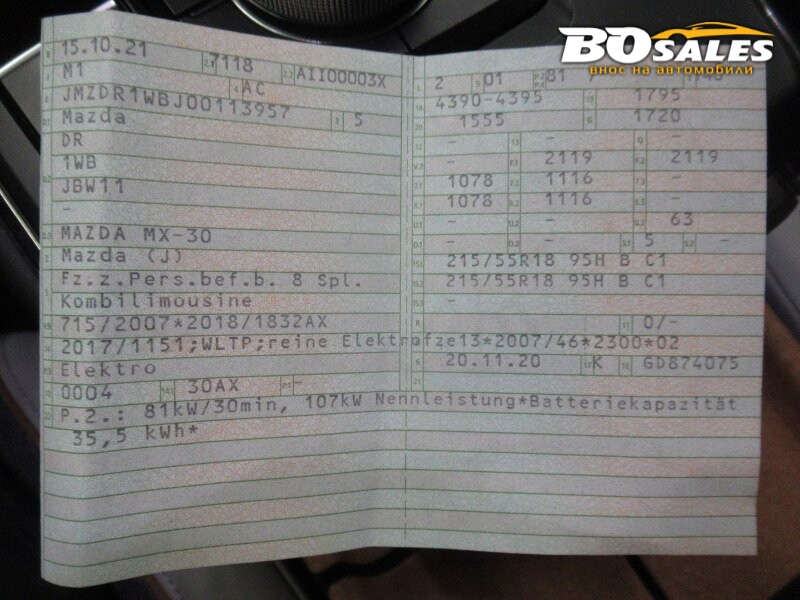 BOSALES
ВНОС НА АВТОМОБИЛИ
15.10.21 7118 AII00003X
M1 AC
JMZDR1WBJ00113957
Mazda 5
DR
1WB
JBW11
-
MAZDA MX-30
Mazda (J)
Fz.z.Pers.bef.b. 8 Spl.
Kombilimousine
715/2007*2018/1832AX
2017/1151;WLTP;reine Elektrofze13*2007/46*2300*02
Elektro
0004 30AX -
P.2.: 81kW/30min, 107kW Nennleistung*Batteriekapazität
35,5 kWh*
2 01 81
4390-4395 1795
1555 1720
- - -
- 2119 2119
1078 1116 -
1078 1116 -
- - 63
- - 5 -
215/55R18 95H B C1
215/55R18 95H B C1
-
0/-
20.11.20 K GD874075